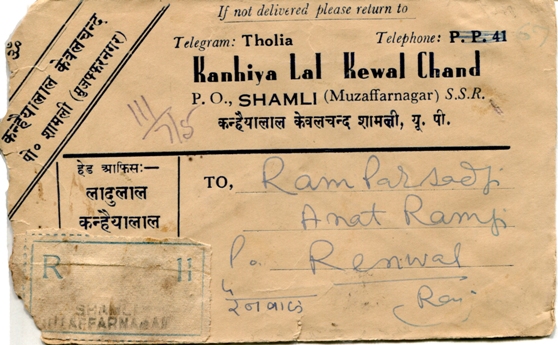 If not delivered please return to
Telegram: Tholia Telephone: P. P. 41
Kanhiya Lal Kewal Chand
P. O., SHAMLI (Muzaffarnagar) S.S.R.
कन्हैयालाल केवलचन्द शामली, यू. पी.
कन्हैयालाल केवलचन्द
पो० शामली (मुजफ्फरनगर)
III/75
हेड आफिस:—
लादुलाल
कन्हैयालाल
TO, Ram Parsadji
Anat Ramji
Po. Renwal
रेनवाल
(Raj
R 11
SHAMLI
MUZAFFARNAGAR